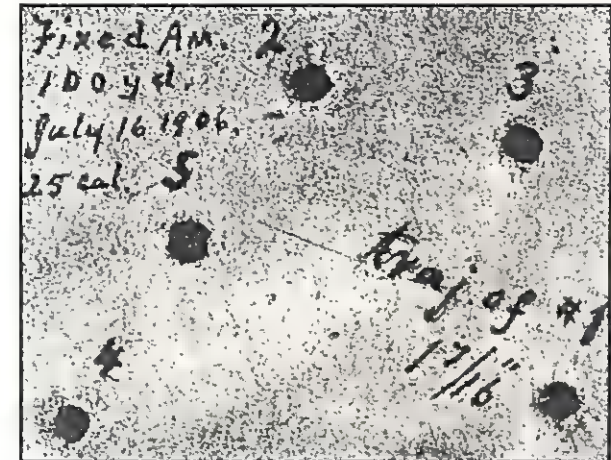 Fixed Am. 2
100 yd. 3
July 16 1906.
25 cal. 5
Traj. of #1
4 1 7/16"